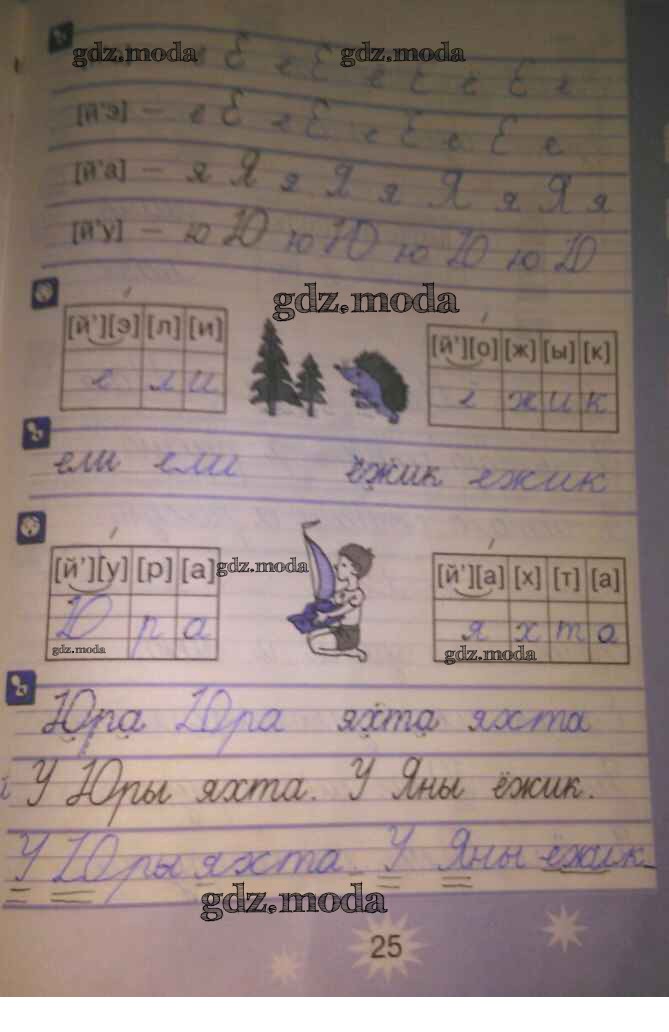 gdz.moda gdz.moda
е Е е Е е Е е Е е
[й'э] — е Е е Е е Е е Е е
[й'а] — я Я я Я я Я я Я я
[й'у] — ю Ю ю Ю ю Ю ю Ю
gdz.moda
[й'][э] [л] [и]
е л и
[й'][о] [ж] [ы] [к]
ё ж и к
ели ели ёжик ежик
[й'][у] [р] [а]
Ю р а
gdz.moda
gdz.moda
[й'][а] [х] [т] [а]
я х т а
gdz.moda
Юра Юра яхта яхта
У Юры яхта. У Яны ёжик.
У Юры яхта. У Яны ёжик.
gdz.moda
25